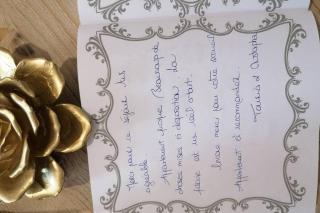 Merci pour ce séjour très
agréable.
Appartement propre, Beaucoup de
choses mises à disposition. La
terrasse est un vrai atout.
Encore merci pour votre accueil
Appartement à recommander.